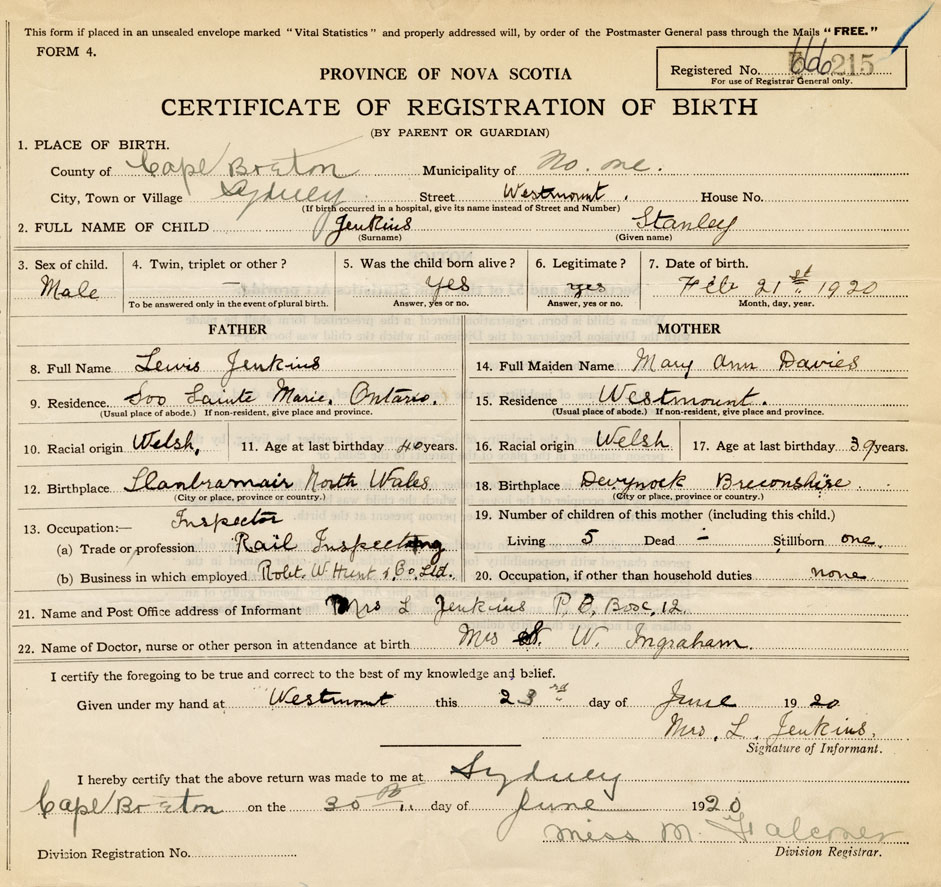 This form if placed in an unsealed envelope marked "Vital Statistics" and properly addressed will, by order of the Postmaster General pass through the Mails "FREE."
FORM 4.
Registered No. 215
For use of Registrar General only.
PROVINCE OF NOVA SCOTIA
CERTIFICATE OF REGISTRATION OF BIRTH
(BY PARENT OR GUARDIAN)
1. PLACE OF BIRTH.
County of Cape Breton Municipality of No. one.
City, Town or Village Sydney Street Westmount. House No.
(If birth occurred in a hospital, give its name instead of Street and Number)
2. FULL NAME OF CHILD Jenkins Stanley
(Surname) (Given name)
3. Sex of child. 4. Twin, triplet or other? 5. Was the child born alive? 6. Legitimate? 7. Date of birth.
Male — Yes yes Feb 21st 1920
To be answered only in the event of plural birth. Answer, yes or no. Answer, yes or no. Month, day, year.
FATHER MOTHER
8. Full Name Lewis Jenkins 14. Full Maiden Name Mary Ann Davies
9. Residence Soo Sainte Marie, Ontario. 15. Residence Westmount.
(Usual place of abode.) If non-resident, give place and province. (Usual place of abode.) If non-resident, give place and province.
10. Racial origin Welsh, 11. Age at last birthday 40 years. 16. Racial origin Welsh 17. Age at last birthday 39 years.
12. Birthplace Llanbramair North Wales 18. Birthplace Devynock Breconshire
(City or place, province or country.) (City or place, province or country.)
13. Occupation:— Inspector 19. Number of children of this mother (including this child.)
(a) Trade or profession Rail Inspecting Living 5 Dead – Stillborn one.
(b) Business in which employed Robt. W Hunt & Co. Ltd. 20. Occupation, if other than household duties none
21. Name and Post Office address of Informant Mrs L Jenkins P.O. Box, 12.
22. Name of Doctor, nurse or other person in attendance at birth Mrs W. Ingraham.
I certify the foregoing to be true and correct to the best of my knowledge and belief.
Given under my hand at Westmount this 23rd day of June 1920
Mrs. L. Jenkins.
Signature of Informant.
I hereby certify that the above return was made to me at Sydney
Cape Breton on the 30th day of June 1920
Miss M. Falconer
Division Registration No. Division Registrar.